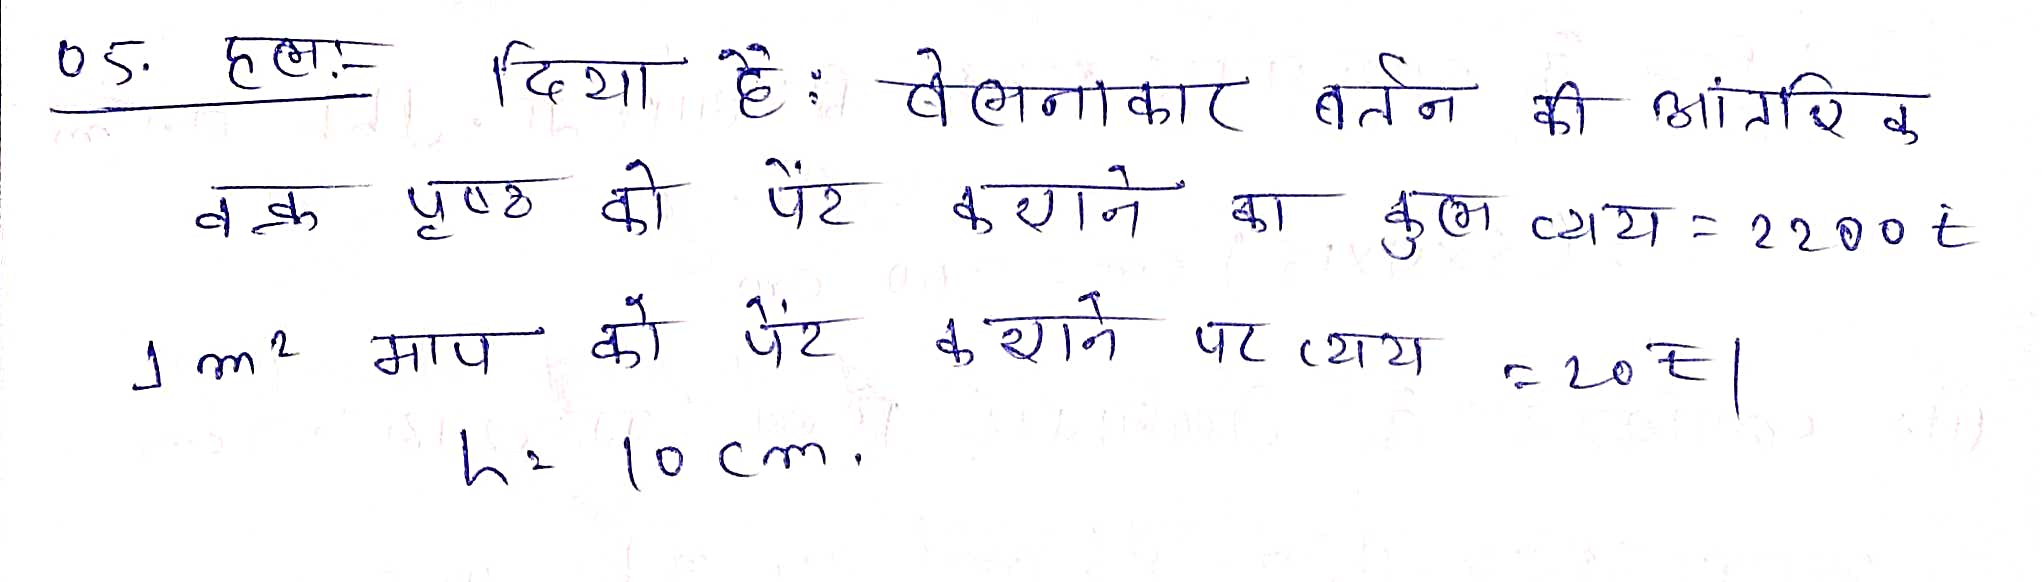 05. हल:- दिया है: बेलनाकार बर्तन की आंतरिक
वक्र पृष्ठ को पेंट कराने का कुल व्यय = 2200 ₹
1 m² माप को पेंट कराने पर व्यय = 20 ₹।
h = 10 cm.